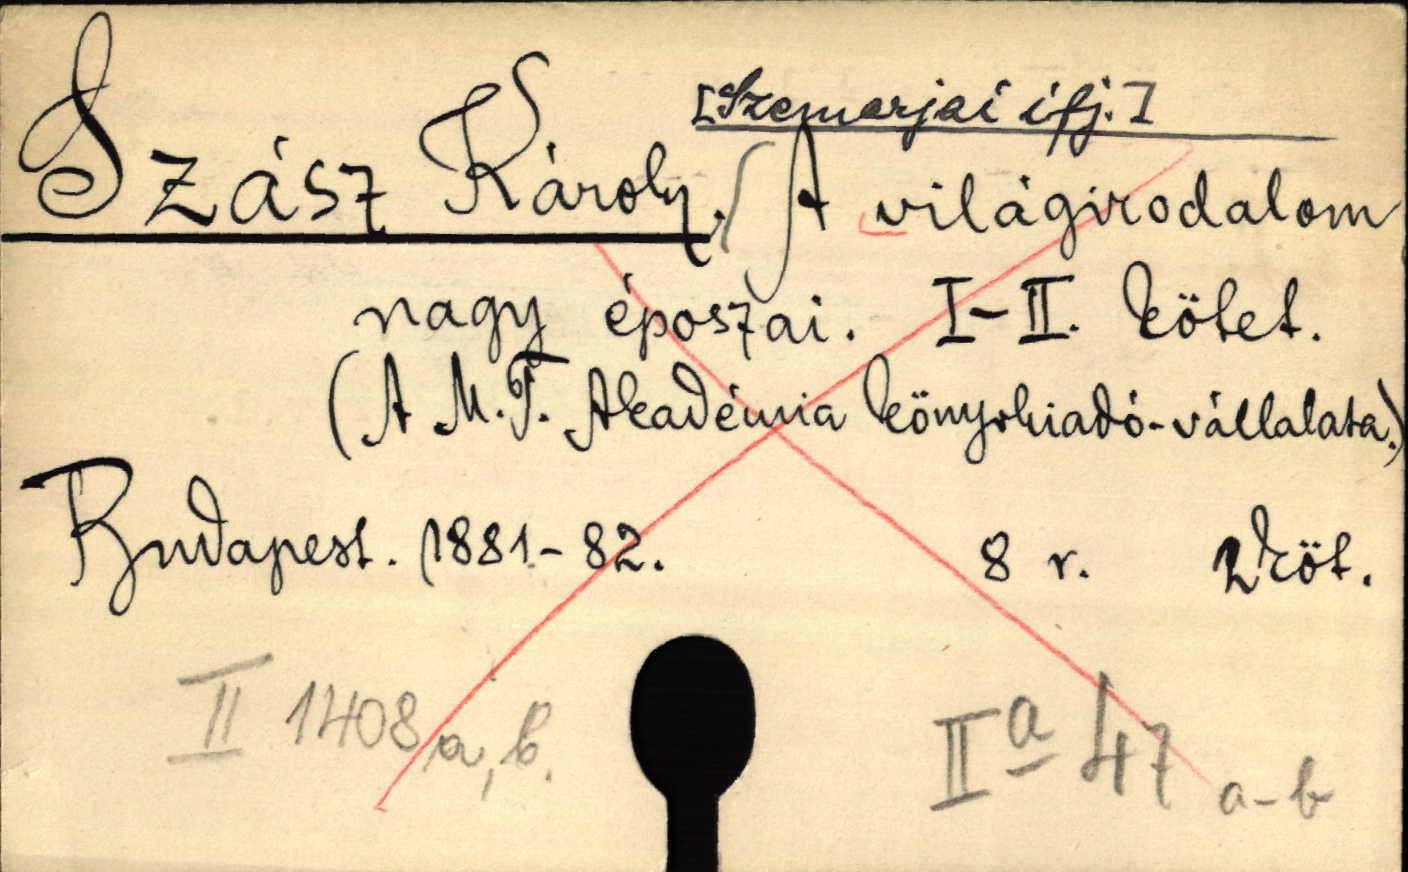 [Szemerjai ifj.]
Szász Károly. A világirodalom
nagy époszai. I-II. kötet.
(A M. T. Akadémia könyvkiadó-vállalata.)
Budapest. 1881-82. 8 r. 2 köt.
II 1408 a, b. II a 47 a-b